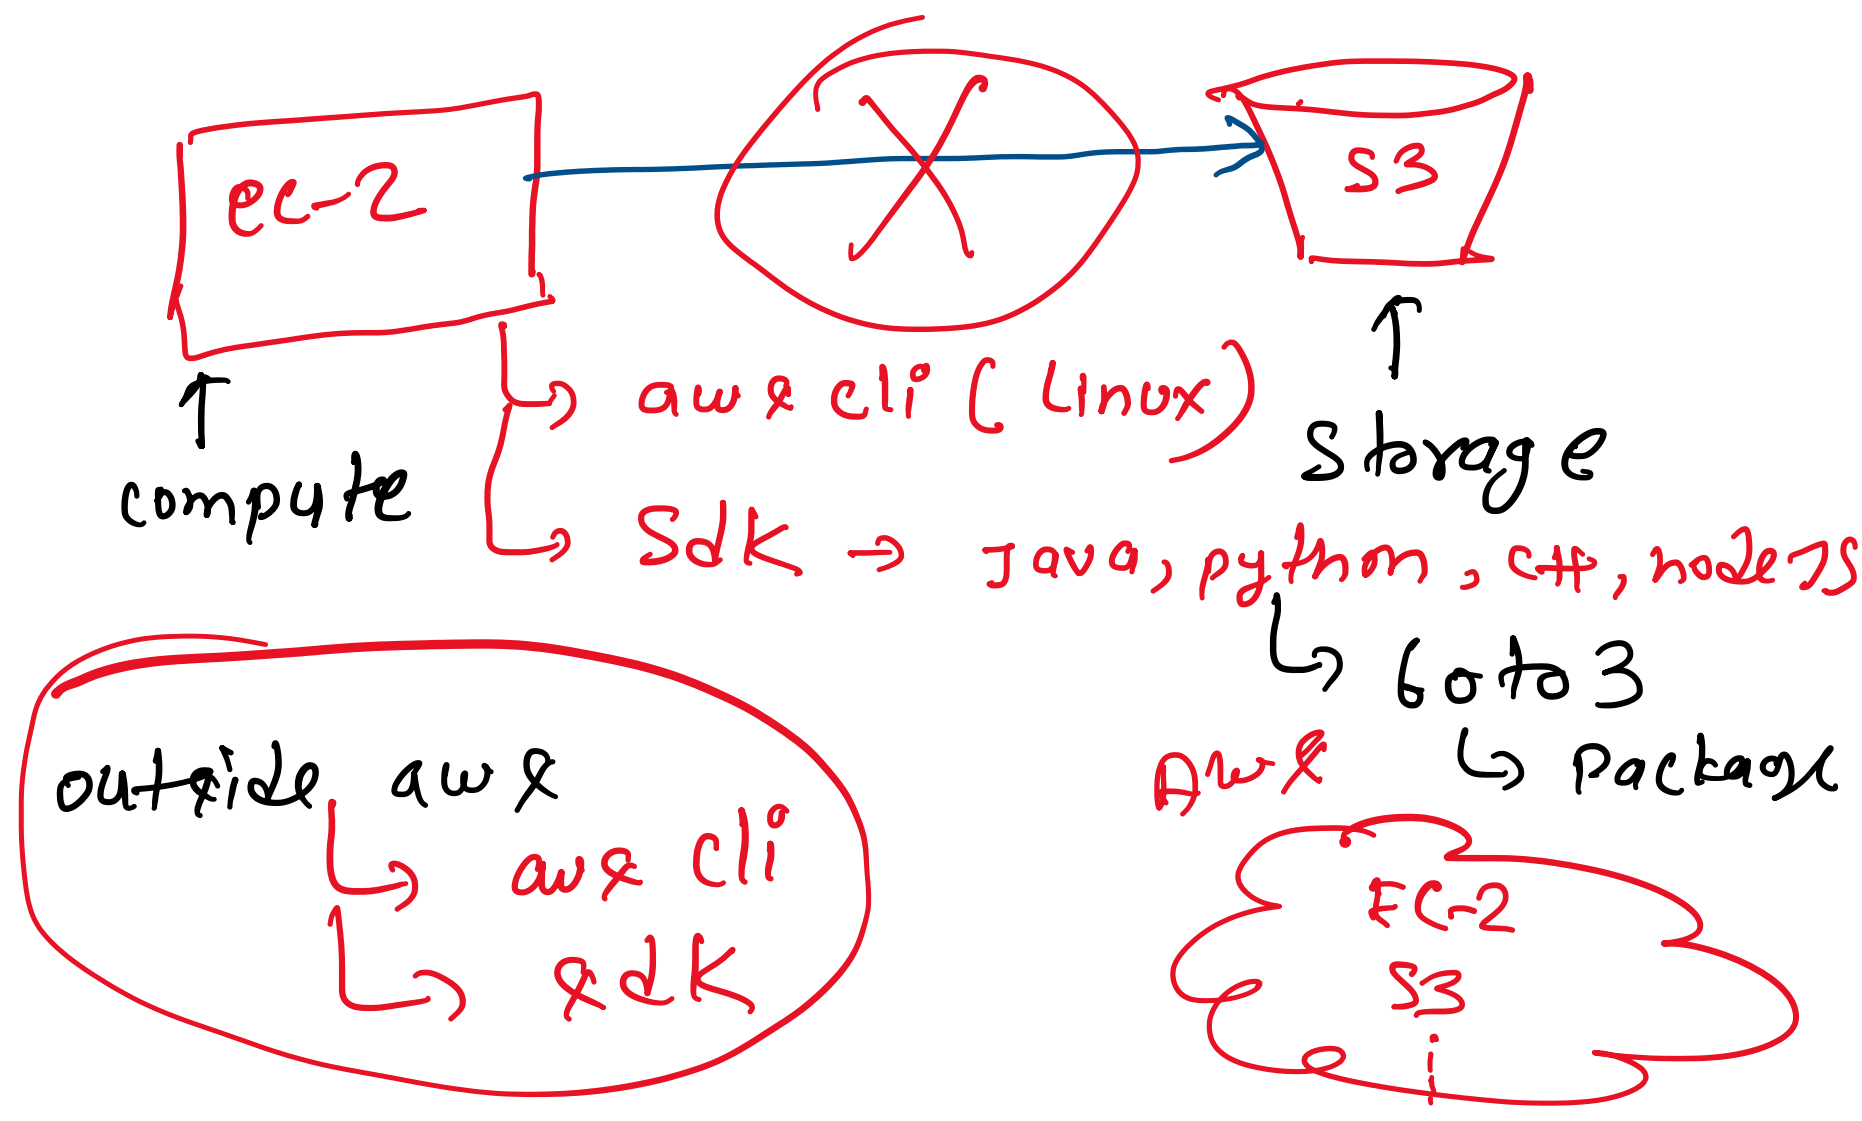 ec-2
S3
aws cli (Linux)
compute
Storage
Sdk → Java, python, C#, node JS
boto3
package
outside aws
aws cli
sdk
AWS
EC-2
S3